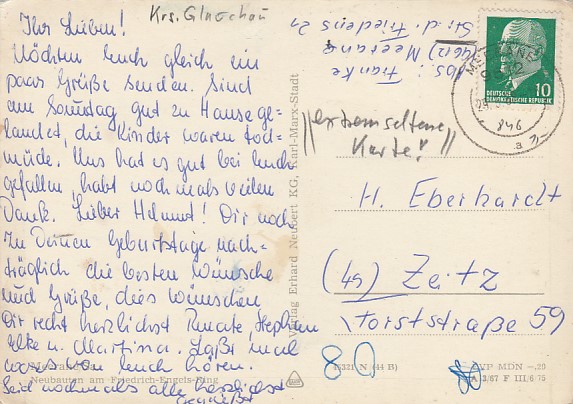 Krs. Glauchau
Ihr Lieben!
Möchten Euch gleich ein
paar Grüße senden. Sind
am Sonntag gut zu Hause ge-
landet, die Kinder waren tod-
müde. Uns hat es gut bei Euch
gefallen, habt nochmals vielen
Dank. Lieber Helmut! Dir noch
zu Deinem Geburtstage nach-
träglich die besten Wünsche
und Grüße, dies wünschen
Dir recht herzlichst Renate, Stephan
Elke u. Martina. Laßt mal
was von Euch hören.
Seid nochmals alle herzlichst
gegrüßt
Neubauten am Friedrich-Engels-Ring
Abs.: Franke
(9612) Meerane
Str. d. Friedens 21
MEERANE
846
a
10
DEUTSCHE
DEMOKRATISCHE REPUBLIK
//extrem seltene
Karte!//
Verlag Erhard Neubert KG, Karl-Marx-Stadt
H. Eberhardt
(49) Zeitz
Forststraße 59
80
N (44 B)
EVP MDN -,20
A 3/67 F III/6 75